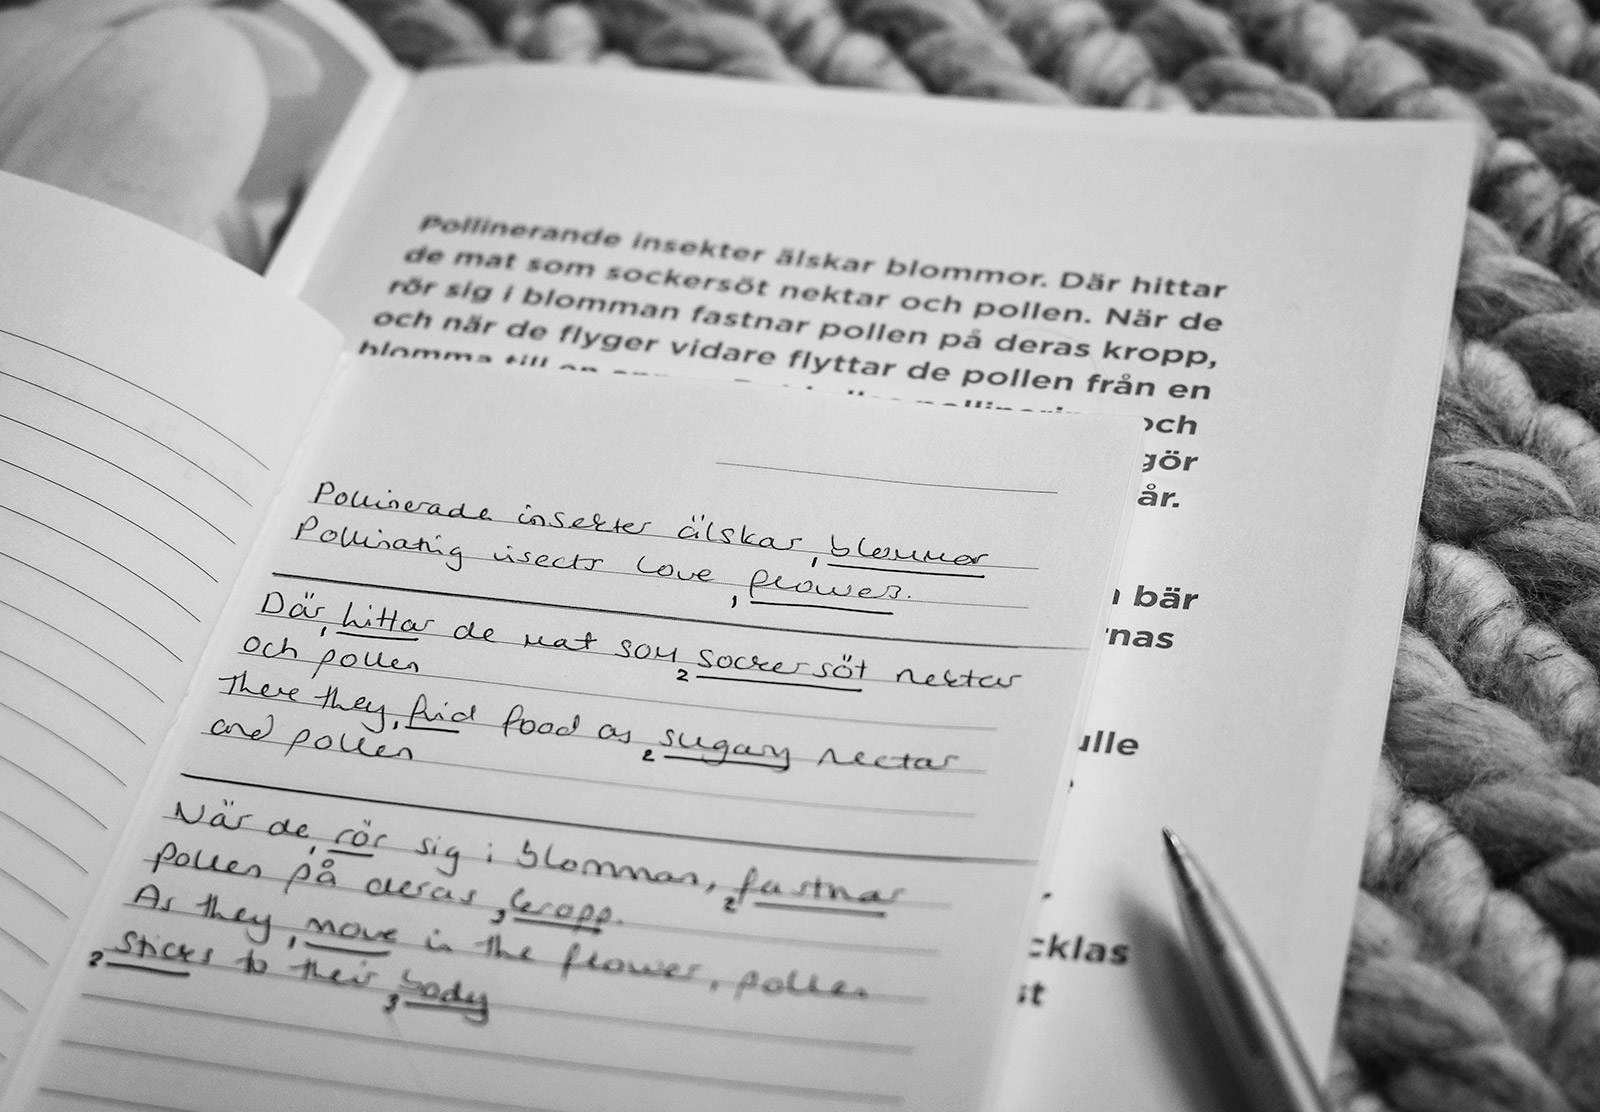 Pollinerande insekter älskar blommor. Där hittar
de mat som sockersöt nektar och pollen. När de
rör sig i blomman fastnar pollen på deras kropp,
och när de flyger vidare flyttar de pollen från en
blomma till en
och
gör
år.
bär
ulle
cklas
Pollinerade insekter älskar 1 blommor
Pollinating insects love 1 flowers.
Där 1 hittar de mat som 2 sockersöt nektar
och pollen
There they 1 find food as 2 sugary nectar
and pollen
När de 1 rör sig i blomman, 2 fastnar
pollen på deras 3 kropp.
As they 1 move in the flower, pollen
2 sticks to their 3 body